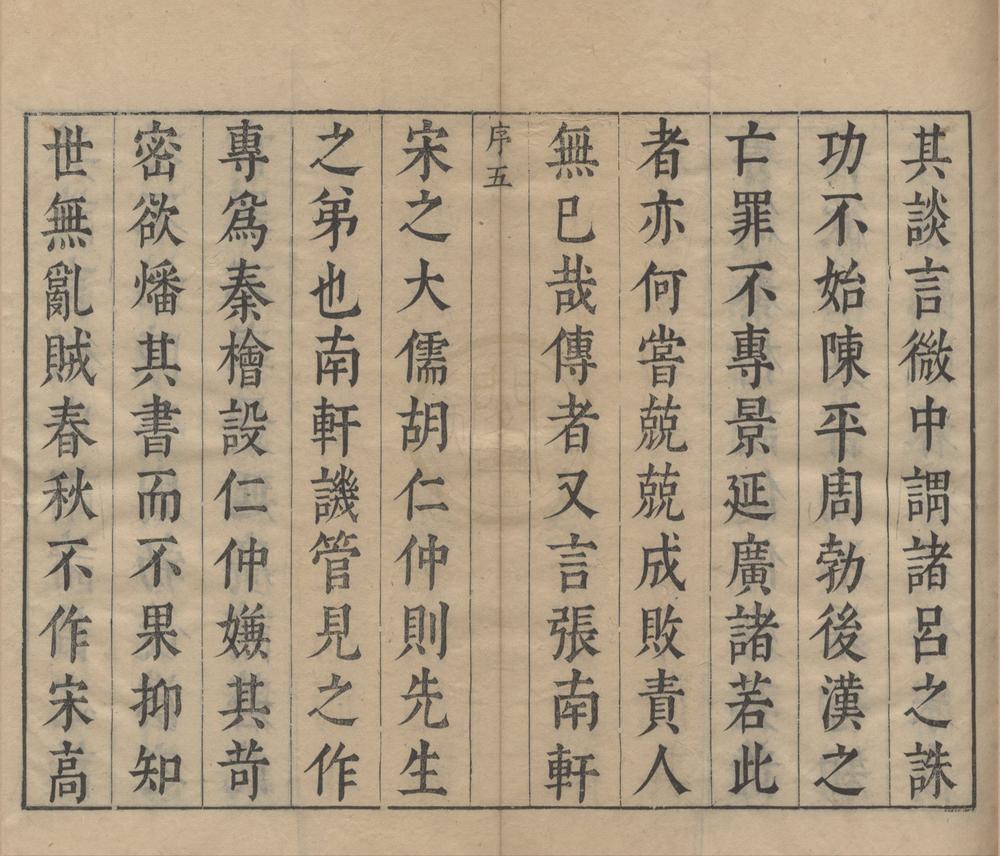 其談言微中謂諸呂之誅
功不始陳平周勃後漢之
亡罪不專景延廣諸若此
者亦何嘗兢兢成敗責人
無已哉傳者又言張南軒
序五
宋之大儒胡仁仲則先生
之弟也南軒譏管見之作
專爲秦檜設仁仲嫌其苛
密欲燔其書而不果抑知
世無亂賊春秋不作宋高